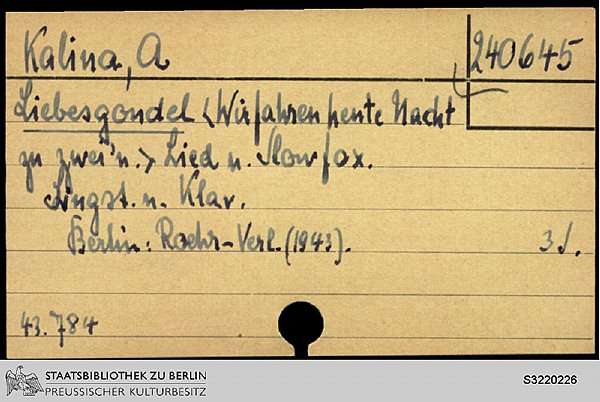 Kalina, A
240645
Liebesgondel <Wir fahren heute Nacht
zu zwei'n.> Lied u. Slowfox.
Singst. u. Klav.
Berlin: Roehr-Verl. (1943).
3 S.
43.784
STAATSBIBLIOTHEK ZU BERLIN
PREUSSISCHER KULTURBESITZ
S3220226